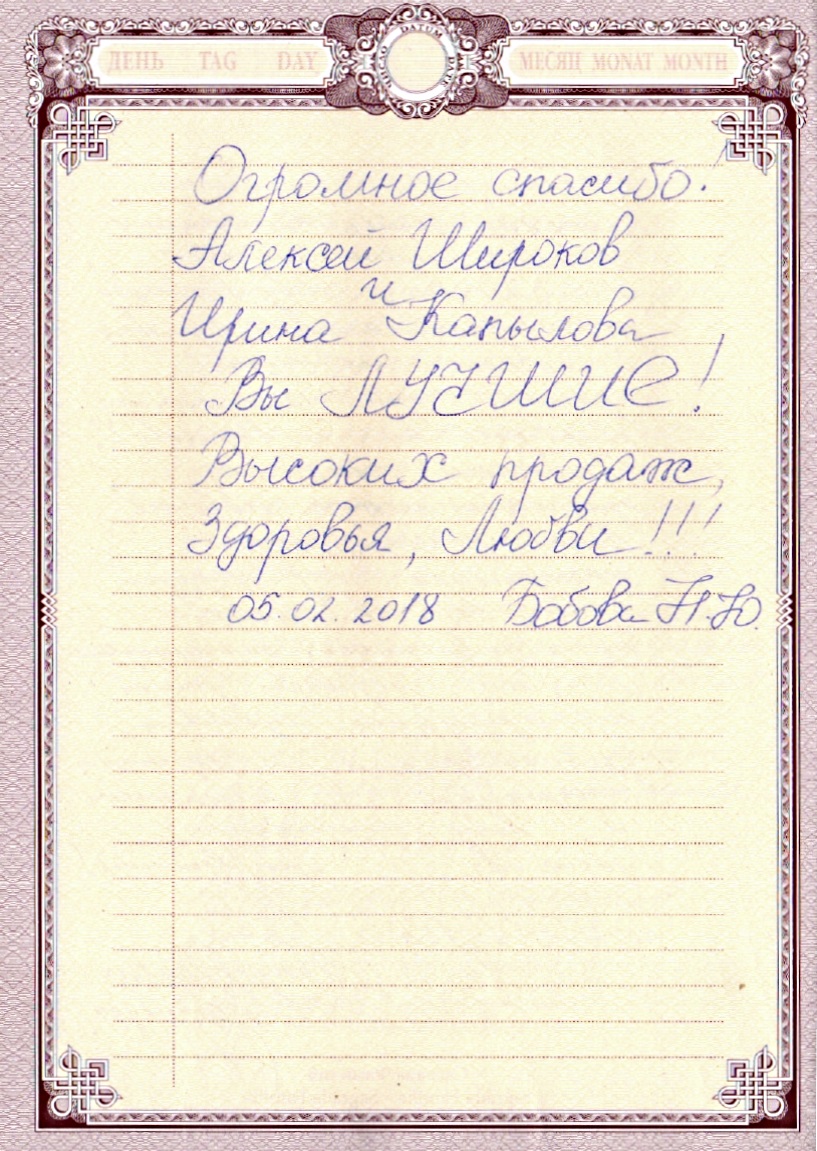 ДЕНЬ TAG DAY DATUM МЕСЯЦ MONAT MONTH
Огромное спасибо!
Алексей Широков
и
Ирина Капылова
Вы ЛУЧШИЕ!
Высоких продаж,
Здоровья, Любви!!!
05.02.2018 Бобова Н.Ю.